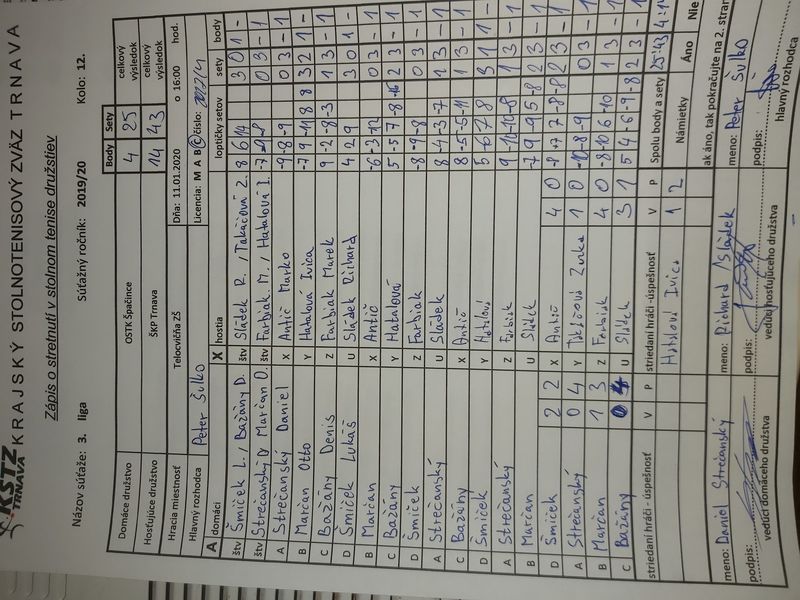 KSTZ TRNAVA KRAJSKÝ STOLNOTENISOVÝ ZVÄZ TRNAVA
Zápis o stretnutí v stolnom tenise družstiev
Názov súťaže: 3. liga Súťažný ročník: 2019/20 Kolo: 12.
Body Sety
Domáce družstvo OSTK Špačince 4 25 celkový výsledok
Hosťujúce družstvo ŠKP Trnava 14 43 celkový výsledok
Hracia miestnosť Telocvičňa ZŠ Dňa: 11.01.2020 o 16:00 hod.
Hlavný rozhodca Peter Šulko Licencia: M A B C číslo:
A domáci X hostia loptičky setov sety body
štv Šmiček L. / Bažány D. štv Sládek R. / Takáčová Z. 8 6 14 3 0 1 -
štv Strečanský D / Marčan O. štv Farbiak M. / Hatalová I. 0 3 - 1
A Strečanský Daniel X Antič Marko -9 -8 -9 0 3 - 1
B Marčan Otto Y Hatalová Ivica -7 9 -11 8 8 3 2 1 -
C Bažány Denis Z Farbiak Marek 9 -2 -8 -3 1 3 - 1
D Šmiček Lukáš U Sládek Richard 4 2 9 3 0 1 -
B Marčan X Antič -6 -3 -12 0 3 - 1
C Bažány Y Hatalová 5 -5 7 -8 -16 2 3 - 1
D Šmiček Z Farbiak -8 -9 -8 0 3 - 1
A Strečanský U Sládek 8 -4 -3 -7 1 3 - 1
C Bažány X Antič 8 -5 -5 -11 1 3 - 1
D Šmiček Y Hatalová 5 -6 7 8 3 1 1 -
A Strečanský Z Farbiak 9 -10 -10 -8 1 3 - 1
B Marčan U Sládek -7 9 -9 5 -8 2 3 - 1
D Šmiček 2 2 X Antič 4 0 2 3 - 1
A Strečanský 0 4 Y Takáčová Zuzka 1 0 -10 -8 -9 0 3 - 1
B Marčan 1 3 Z Farbiak 4 0 -8 10 -6 -10 1 3 - 1
C Bažány U Sládek 3 1 5 4 -6 -9 -8 2 3 - 1
striedaní hráči - úspešnosť V P striedaní hráči -úspešnosť V P Spolu body a sety 25:43 4:14
Hatalová Ivica 1 2 Námietky Áno Nie
ak áno, tak pokračujte na 2. stran
meno: Daniel Strečanský meno: Richard Sládek meno: Peter Šulko
podpis: podpis: podpis:
vedúci domáceho družstva vedúci hosťujúceho družstva hlavný rozhodca